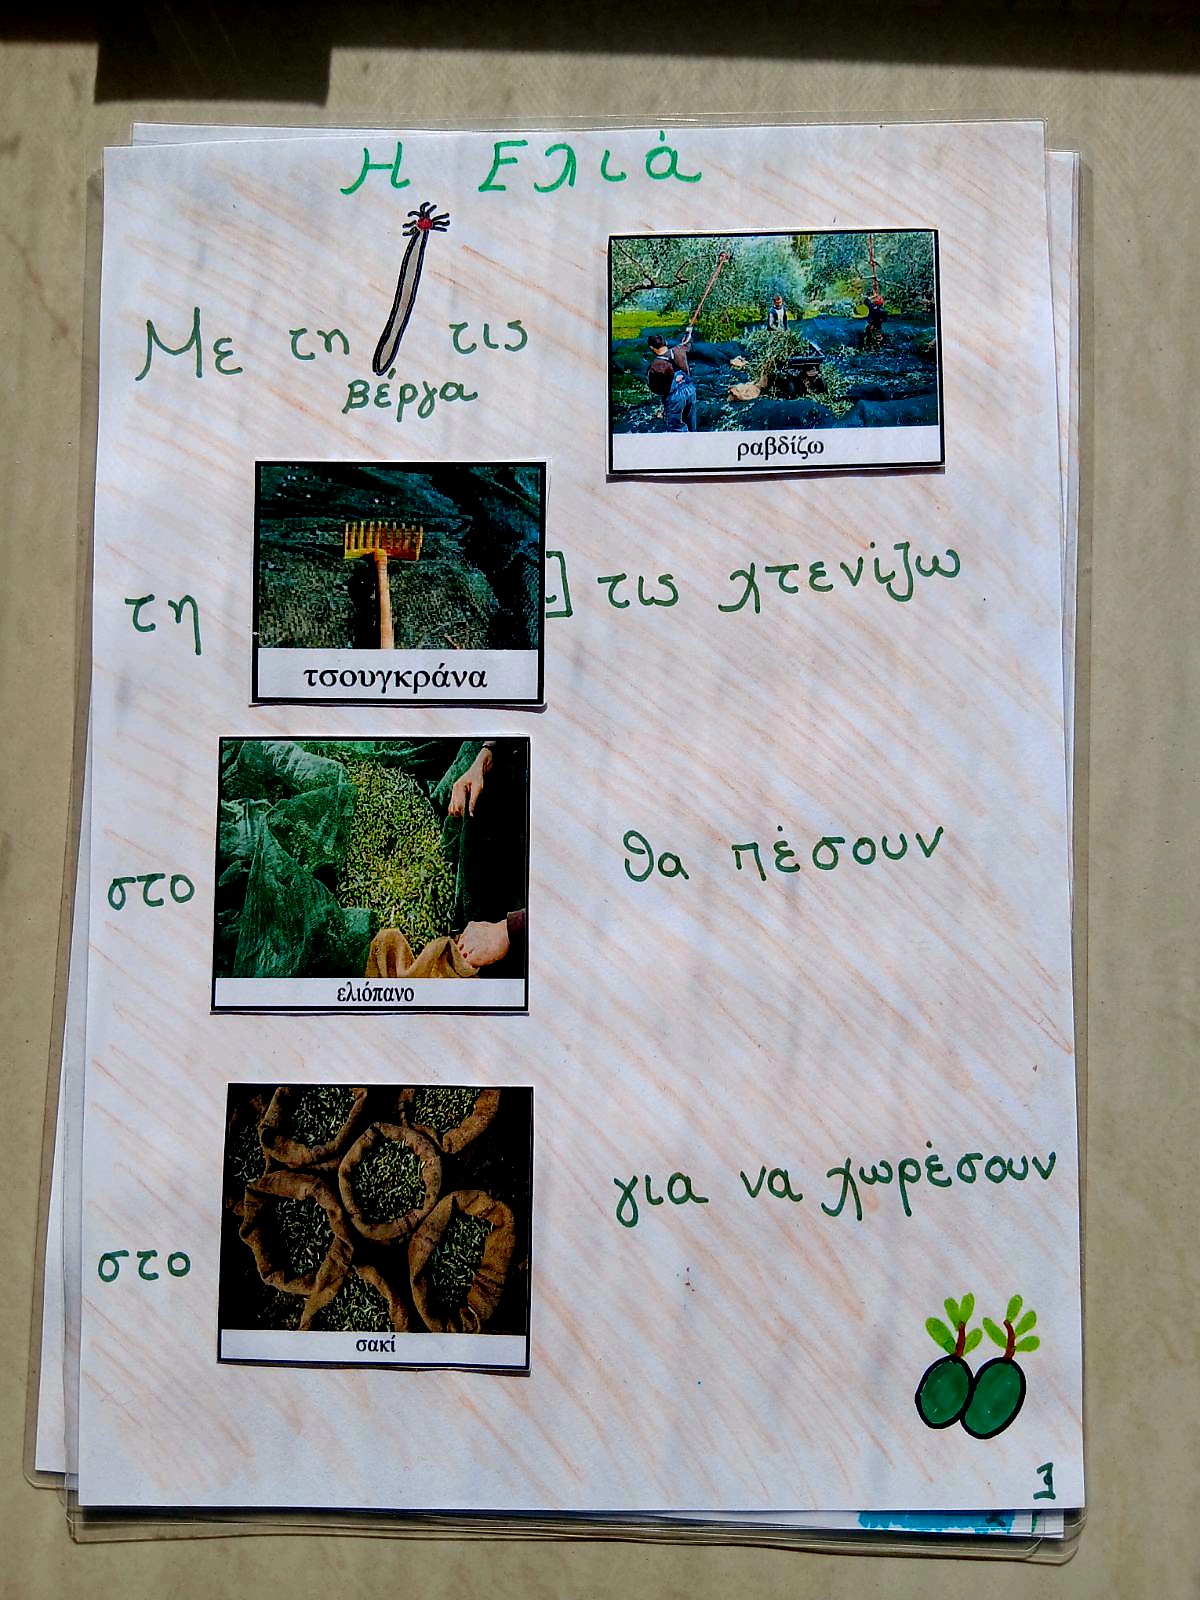 Η Ελιά
Με τη τις
βέργα
ραβδίζω
τη τις χτενίζω
τσουγκράνα
στο θα πέσουν
ελιόπανο
στο για να χωρέσουν
σακί
1